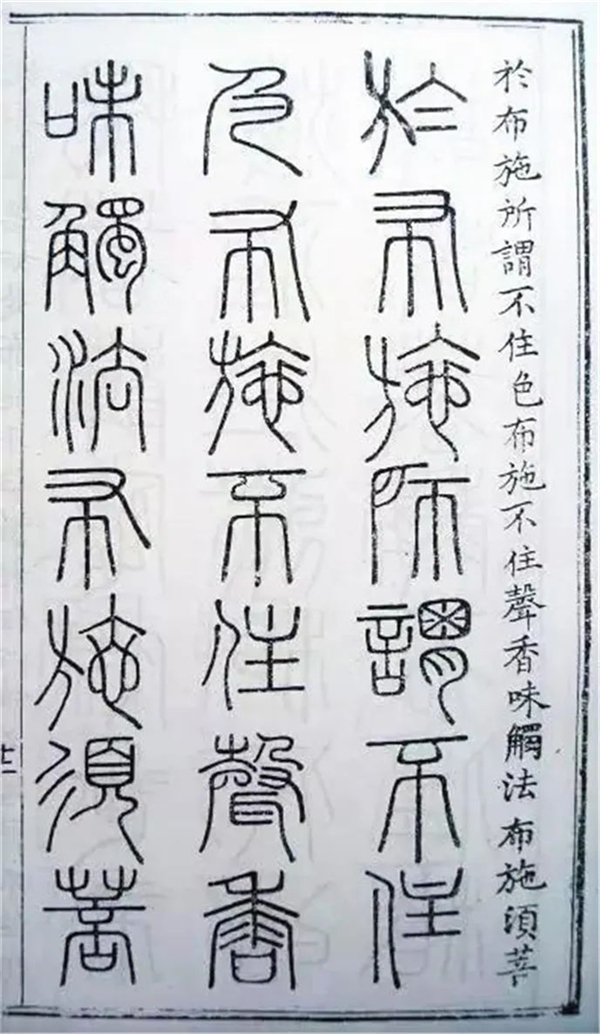 於布施所謂不住色布施不住聲香味觸法布施須菩
於布施所謂不住
色布施不住聲香
味觸法布施須菩
廿